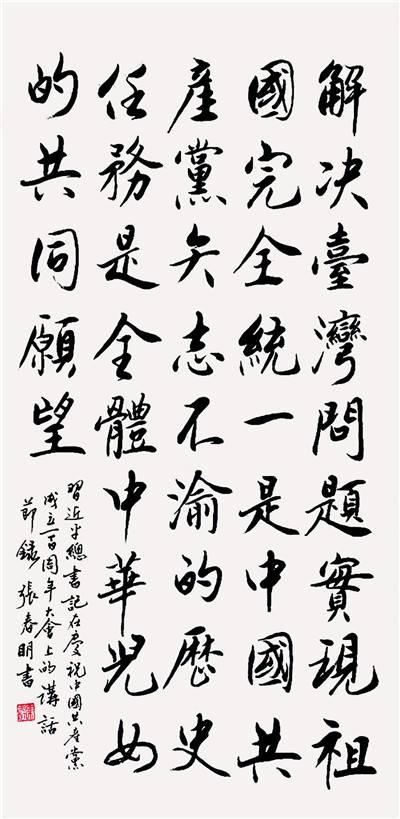 解决臺灣問題實現祖
國完全統一是中國共
產黨矢志不渝的歷史
任務是全體中華兒女
的共同願望
習近平總書記在慶祝中國共產黨
成立一百周年大會上的講話
節録 張春明書